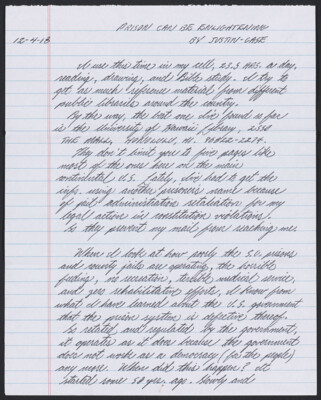 PRISON CAN BE ENLIGHTENING
12-4-18 BY JUSTIN-CASE
I use this time in my cell, 23.5 HRS. a day,
reading, drawing, and Bible study. I try to
get as much reference material from different
public libraries around the country.
By the way, the best one I've found so far
is the University of Hawaii Library, 2550
THE MALL, HONOLULU, HI. 96822-2274.
They don't limit you to five pages like
most of the ones here on the main
continental U.S. Lately, I've had to get the
info. using another prisoner's name because
of jail administration retaliation for my
legal action in constitution violations.
So they prevent my mail from reaching me.
When I look at how poorly the S.C. prisons
and county jails are operating, the horrible
feeding, no recreation, terrible medical service,
and zero rehabilitative efforts, I know from
what I have learned about the U.S. government
that the prison system is defective thereof.
So related, and regulated by the government,
it operates as it does because the government
does not work as a democracy (for the people)
any more. When did this happen? It
started some 50 yrs. ago. Slowly and